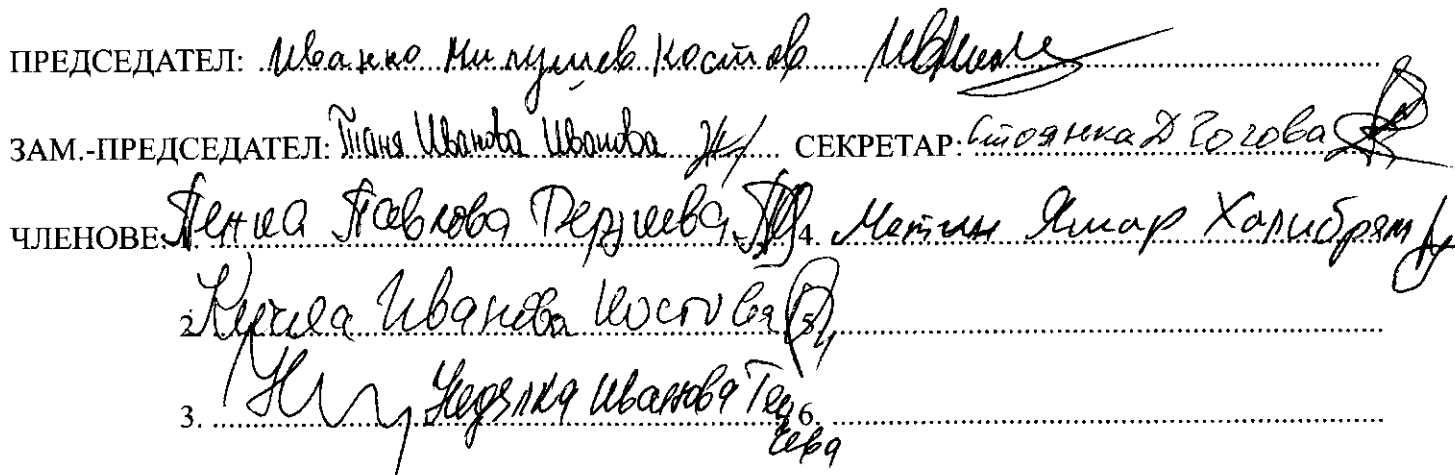 ПРЕДСЕДАТЕЛ: Иванко Костов
ЗАМ.-ПРЕДСЕДАТЕЛ: Таня Иванова Иванова СЕКРЕТАР: Стоянка Д Гогова
ЧЛЕНОВЕ: 1. Пенка Павлова 4. Метин Яшар Халибрям
2. Иванова Костова 5.
3. Недялка Иванова 6.